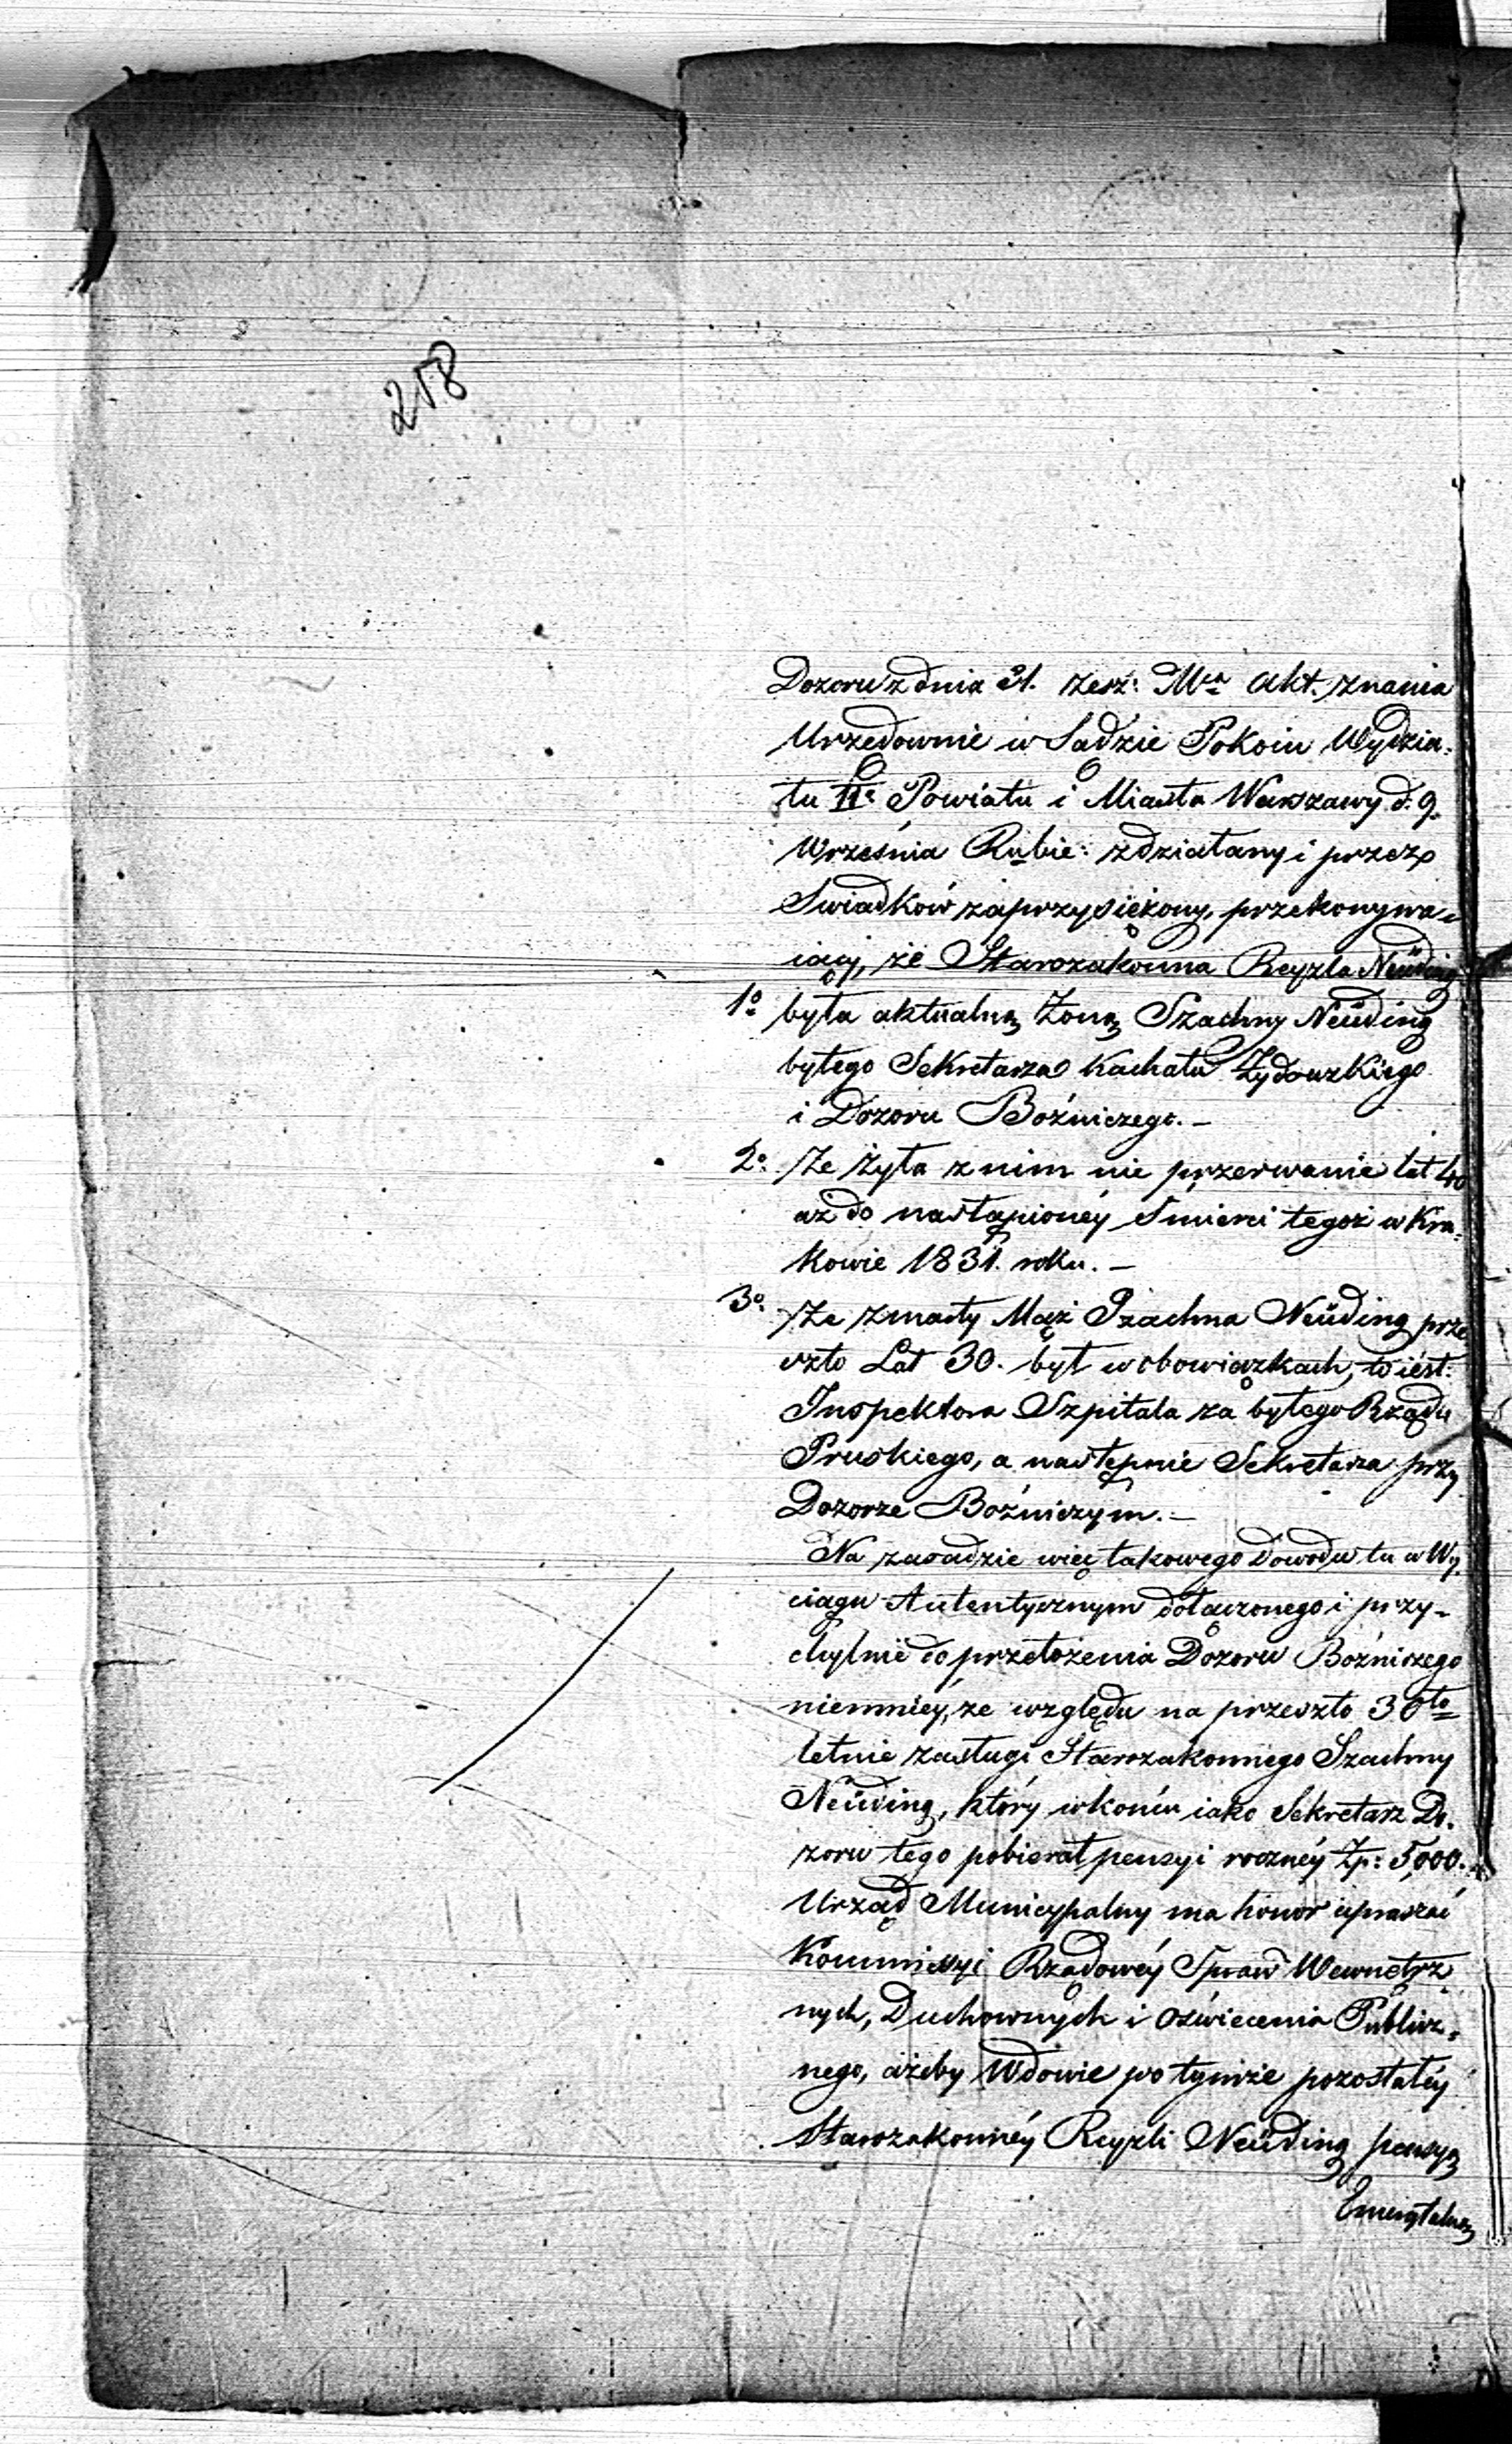 258
Dozoru z dnia 21. zesz: Mca Akt. znania
Urzędownie w Sądzie Pokoiu Wydzia-
łu II: Powiatu i Miasta Warszawy d. 9.
Września R. bie: zdziałany i przez
Swiadków zaprzysiężony, przekonywa-
iący, że Starozakonna Reyzla Neüding
1o była aktualną Zoną Szachny Neüding
byłego Sekretarza Kachału Żydowskiego
i Dozoru Bożniczego. -
2o: Ze żyła z nim nie przerwanie lat 40
aż do nastąpionéy Smierci tegoż w Kra-
kowie 1831. roku. -
3o: Ze zmarły Mąż Szachna Neüding prze
szło Lat 30. był w obowiązkach, to iést:
Inspektora Szpitala za byłego Rządu
Pruskiego, a następnie Sekretarza przy
Dozorze Bożniczym. -
Na zasadzie więc takowego Dowodu tu w Wy-
ciągu Autentycznym dołączonego i przy-
chylnie do przełożenia Dozoru Bożniczego
niemniéy, ze względu na przeszło 30to
letnie zasługi Starozakonnego Szachny
Neüding, który w końcu iako Sekretarz Do-
zoru tego pobierał pensyi rocznéy Zp: 5,000.
Urząd Municypalny ma honor upraszać
Kommissyi Rządowéy Spraw Wewnętrz-
nych, Duchownych i Oświecenia Publicz-
nego, ażeby Wdowie po tymże pozostałéy
Starozakonnéy Reyzli Neüding pensyą
Emerytalną